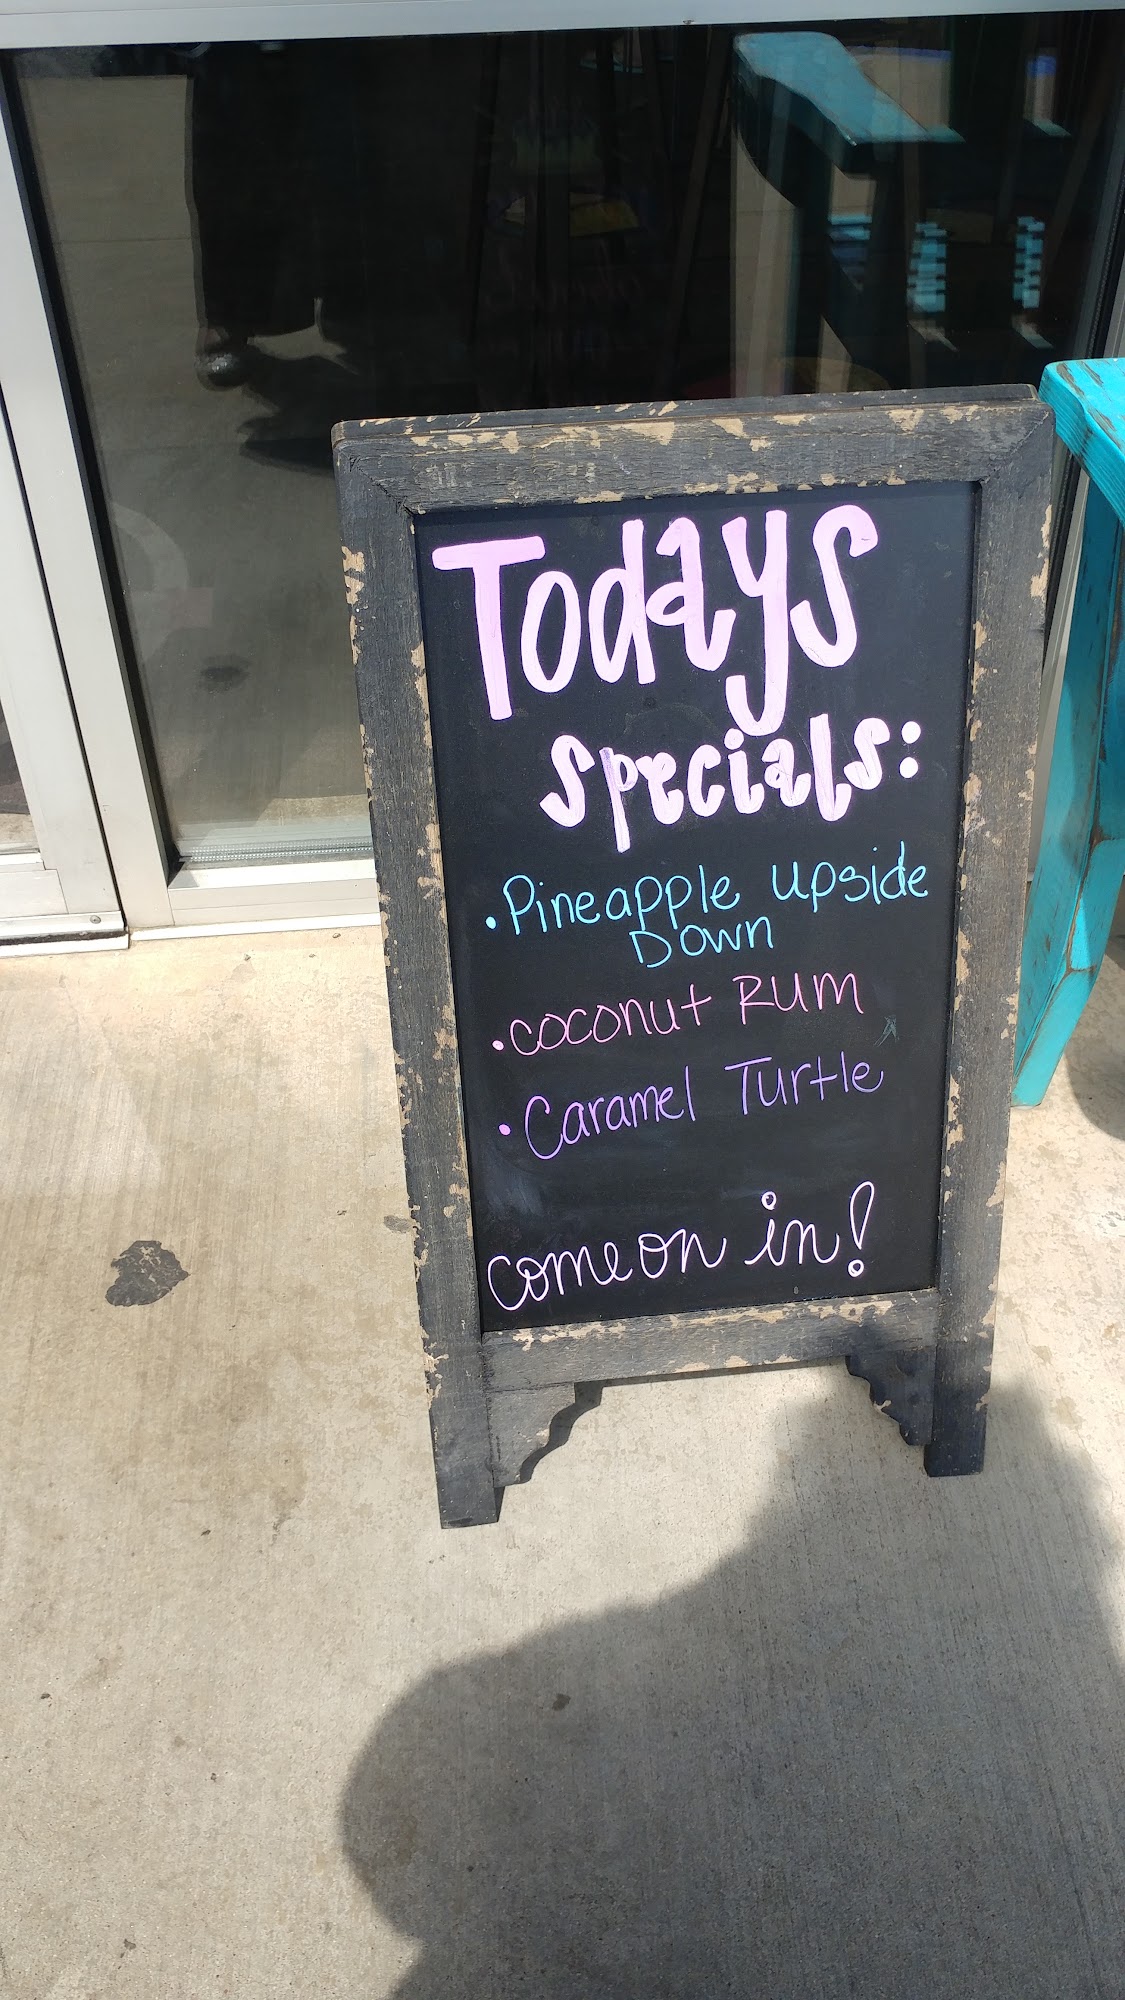 Todays
specials:
• Pineapple upside
Down
• coconut RUM
• Caramel Turtle
come on in!